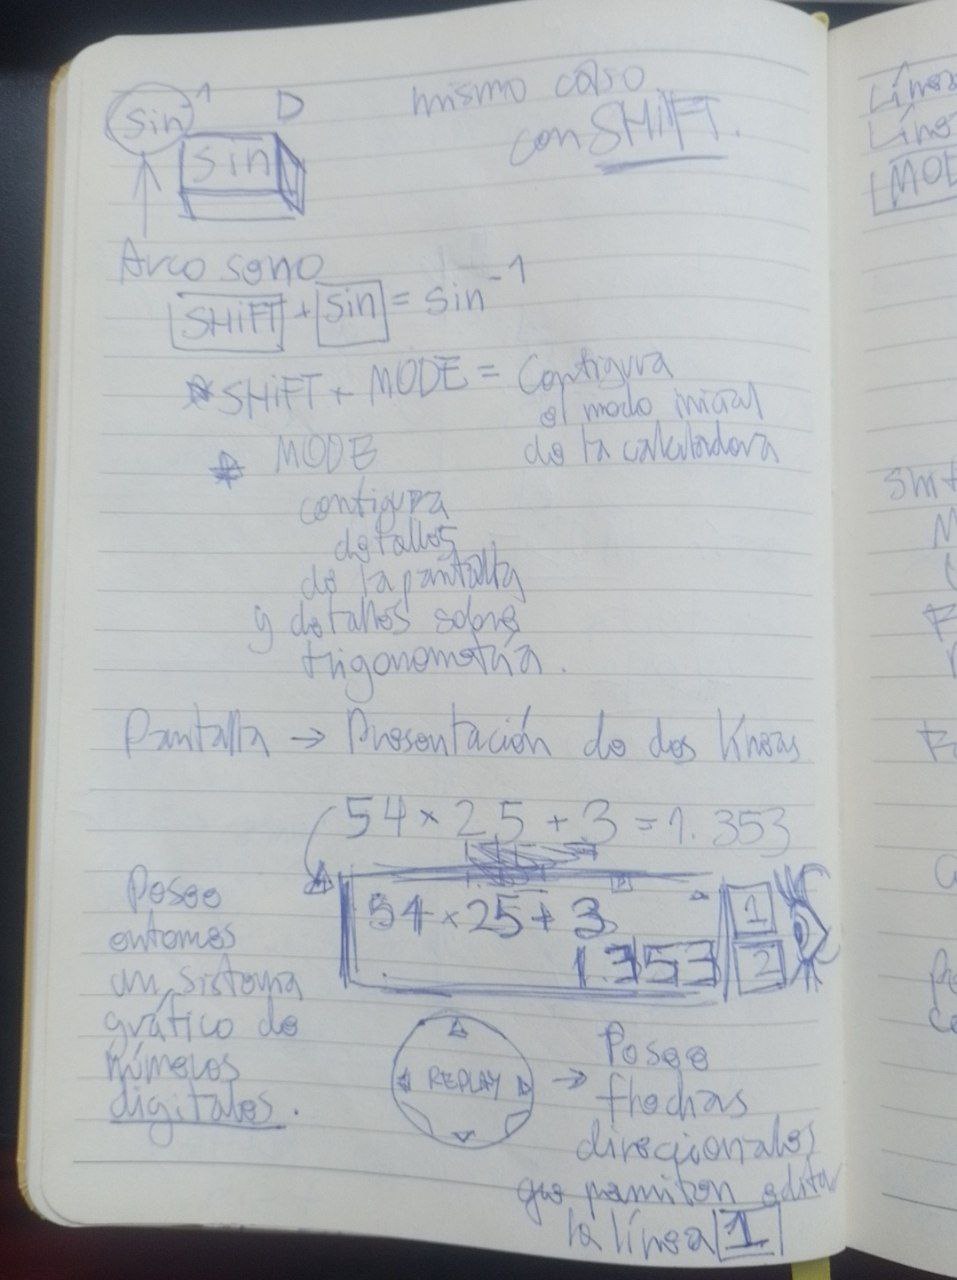 sin⁻¹ D
mismo caso
con SHiFT.
sin
Arco seno
SHiFT + sin = sin⁻¹
* SHiFT + MODE = Configura
el modo inicial
de la calculadora
* MODE
configura
detalles
de la pantalla
y detalles sobre
trigonometría.
Pantalla → Presentación de dos líneas
54 × 25 + 3 = 1.353
54 × 25 + 3
1
1.353
2
Posee
entonces
un sistema
gráfico de
números
digitales.
REPLAY →
Posee
flechas
direccionales
que permiten editar
la línea 1
Línea
Líne
MOD